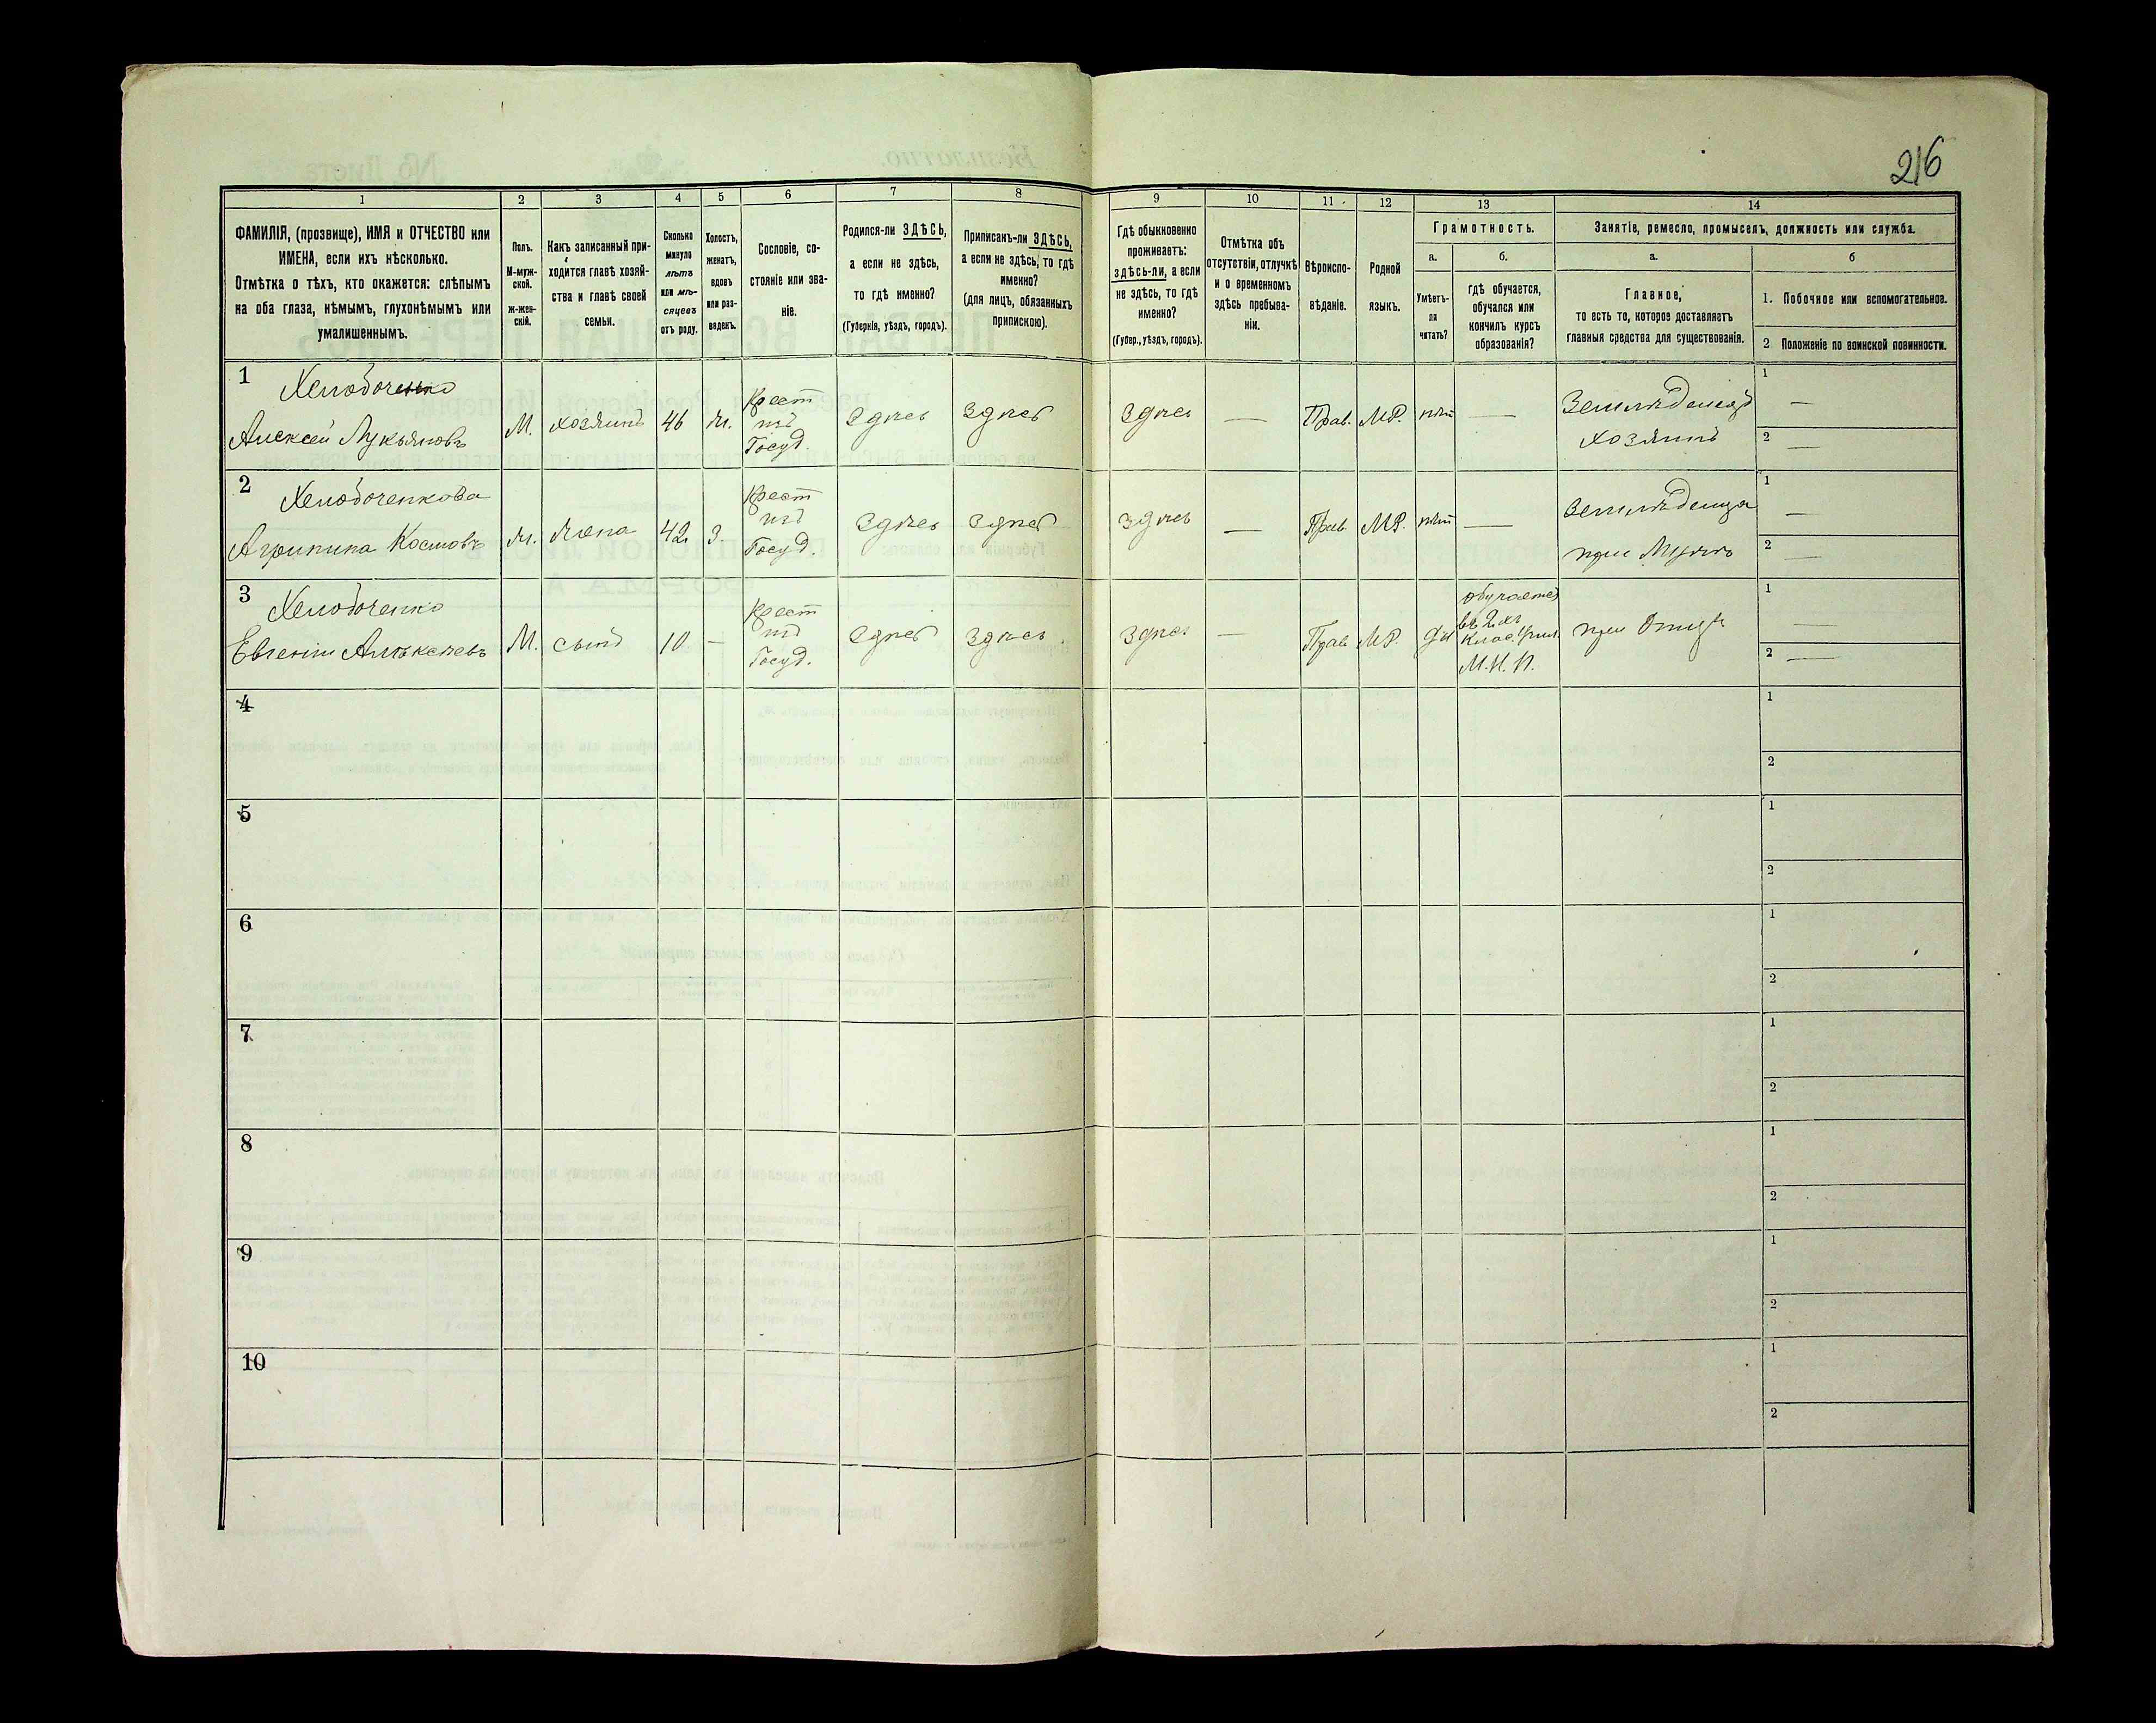 216
1 2 3 4 5 6 7 8 9 10 11 12 13 14
ФАМИЛІЯ, (прозвище), ИМЯ и ОТЧЕСТВО или
ИМЕНА, если ихъ нѣсколько.
Отмѣтка о тѣхъ, кто окажется: слѣпымъ
на оба глаза, нѣмымъ, глухонѣмымъ или
умалишеннымъ.
Полъ.
М-муж-
ской.
ж-жен-
скій.
Какъ записанный при-
ходится главѣ хозяй-
ства и главѣ своей
семьи.
Сколько
минуло
лѣтъ
или мѣ-
сяцевъ
отъ роду.
Холостъ,
женатъ,
вдовъ
или раз-
веденъ.
Сословіе, со-
стояніе или зва-
ніе.
Родился-ли ЗДѢСЬ,
а если не здѣсь,
то гдѣ именно?
(Губернія, уѣздъ, городъ).
Приписанъ-ли ЗДѢСЬ,
а если не здѣсь, то гдѣ
именно?
(для лицъ, обязанныхъ
припискою).
Гдѣ обыкновенно
проживаетъ:
здѣсь-ли, а если
не здѣсь, то гдѣ
именно?
(Губер., уѣздъ, городъ).
Отмѣтка объ
отсутствіи, отлучкѣ
и о временномъ
здѣсь пребыва-
ніи.
Вѣроиспо-
вѣданіе.
Родной
языкъ.
Грамотность.
а.
Умѣетъ-
ли
читать?
б.
гдѣ обучается,
обучался или
кончилъ курсъ
образованія?
Занятіе, ремесло, промыселъ, должность или служба.
а.
Главное,
то есть то, которое доставляетъ
главныя средства для существованія.
б
1. Побочное или вспомогательное.
2 Положеніе по воинской повинности.
1
Алексей Лукьяновъ
М.
хозяинъ
46
ж.
Крест
изъ
Госуд.
Здѣсь
Здѣсь
Здѣсь
—
Прав.
МР.
нѣт
—
Земледѣлецъ
хозяинъ
1 —
2 —
2
Агрипина
ж.
жена
42
З.
Крест
изъ
Госуд.
Здѣсь
Здѣсь
Здѣсь
—
Прав.
МР.
нѣт
—
при Мужѣ
1 —
2 —
3
Евгеній
М.
сынъ
10
—
Крест
изъ
Госуд.
Здѣсь
Здѣсь
Здѣсь
—
Прав
МР.
да
обучается
въ 2хъ
М.Н.П.
при Отцѣ
1 —
2 —
4
1
2
5
1
2
6
1
2
7
1
2
8
1
2
9
1
2
10
1
2